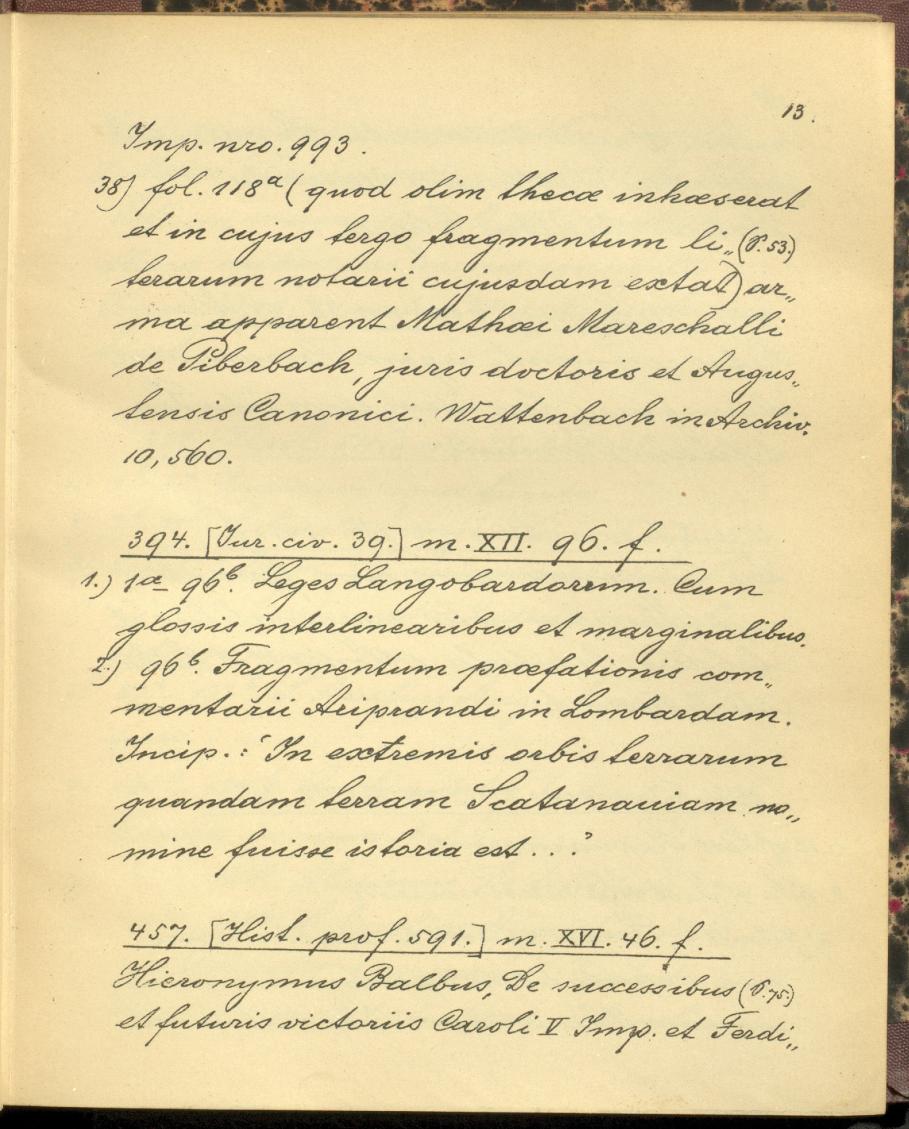 13.
Imp. nro. 993.
38) fol. 118a (quod olim thecæ inhæserat
et in cujus tergo fragmentum li„ (P. 53.)
terarum notarii cujusdam extat) ar„
ma apparent Mathæi Mareschalli
de Piberbach, juris doctoris et Augus„
tensis Canonici. Wattenbach in Archiv.
10, 560.
394. [Jur. civ. 39.] m. XII. 96. f.
1.) 1a – 96b. Leges Langobardorum. Cum
glossis interlinearibus et marginalibus.
2.) 96b. Fragmentum præfationis com„
mentarii Ariprandi in Lombardam.
Incip.: ‘In extremis orbis terrarum
quandam terram Scatanauiam no„
mine fuisse istoria est . . .’
457. [Hist. prof. 591.] m. XVI. 46. f.
Hieronymus Balbus, De successibus (P. 75.)
et futuris victoriis Caroli V Imp. et Ferdi„